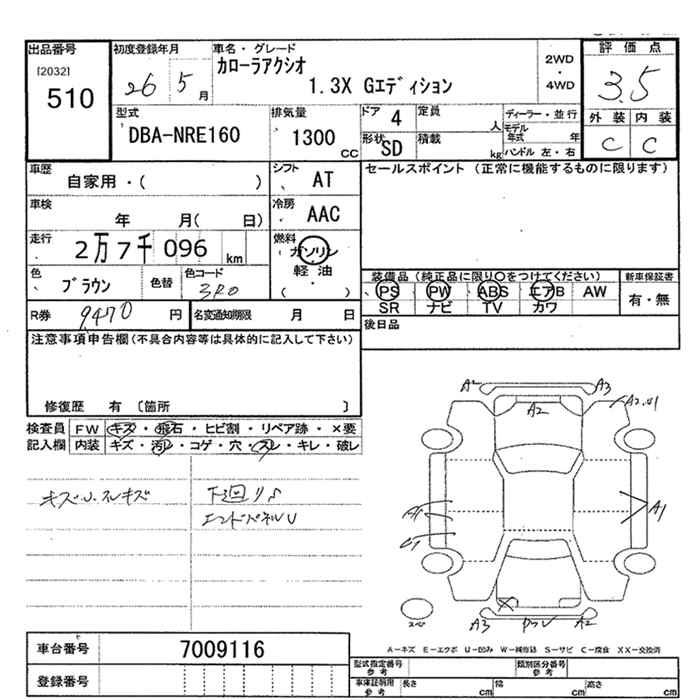 出品番号 初度登録年月 車名・グレード 評価点
[2032] カローラアクシオ 2WD
510 26 5月 1.3X Gエディション ・ 3.5
4WD
型式 排気量 ドア 4 定員 人 ディーラー・並行 外装 内装
DBA-NRE160 1300 CC 形状 SD 積載 kg モデル年式 年 C C
ハンドル 左・右
車歴 シフト セールスポイント (正常に機能するものに限ります)
自家用・( ) AT
車検 冷房
年 月( 日) AAC
走行 燃料
2万7千096 km ガソリン
軽油
色 色替 色コード ( )
ブラウン
装備品 (純品品に限り○をつけてください) 新車保証書
PS PW ABS エアB AW 有・無
SR ナビ TV カワ
R券 9470 円 名変通知期限 月 日 後日品
注意事項申告欄(不具合内容等は具体的に記入して下さい)
修復歴 有 〔箇所 〕
検査員 FW キズ・飛石・ヒビ割・リペア跡・×要
記入欄 内装 キズ・汚レ・コゲ・穴・スレ・キレ・破レ
キズU.スレキズ 下回りS
エンドパネルU
A2 A3
A2 A2.U1
A1
A3 A2
スペ
A－キズ E－エクボ U－凹み W－補修跡 S－サビ C－腐食 XX－交換済
車台番号 7009116
型式指定番号 参考 類別区分番号 参考
登録番号 車庫証明用 参考 長さ cm 幅 cm 高さ cm